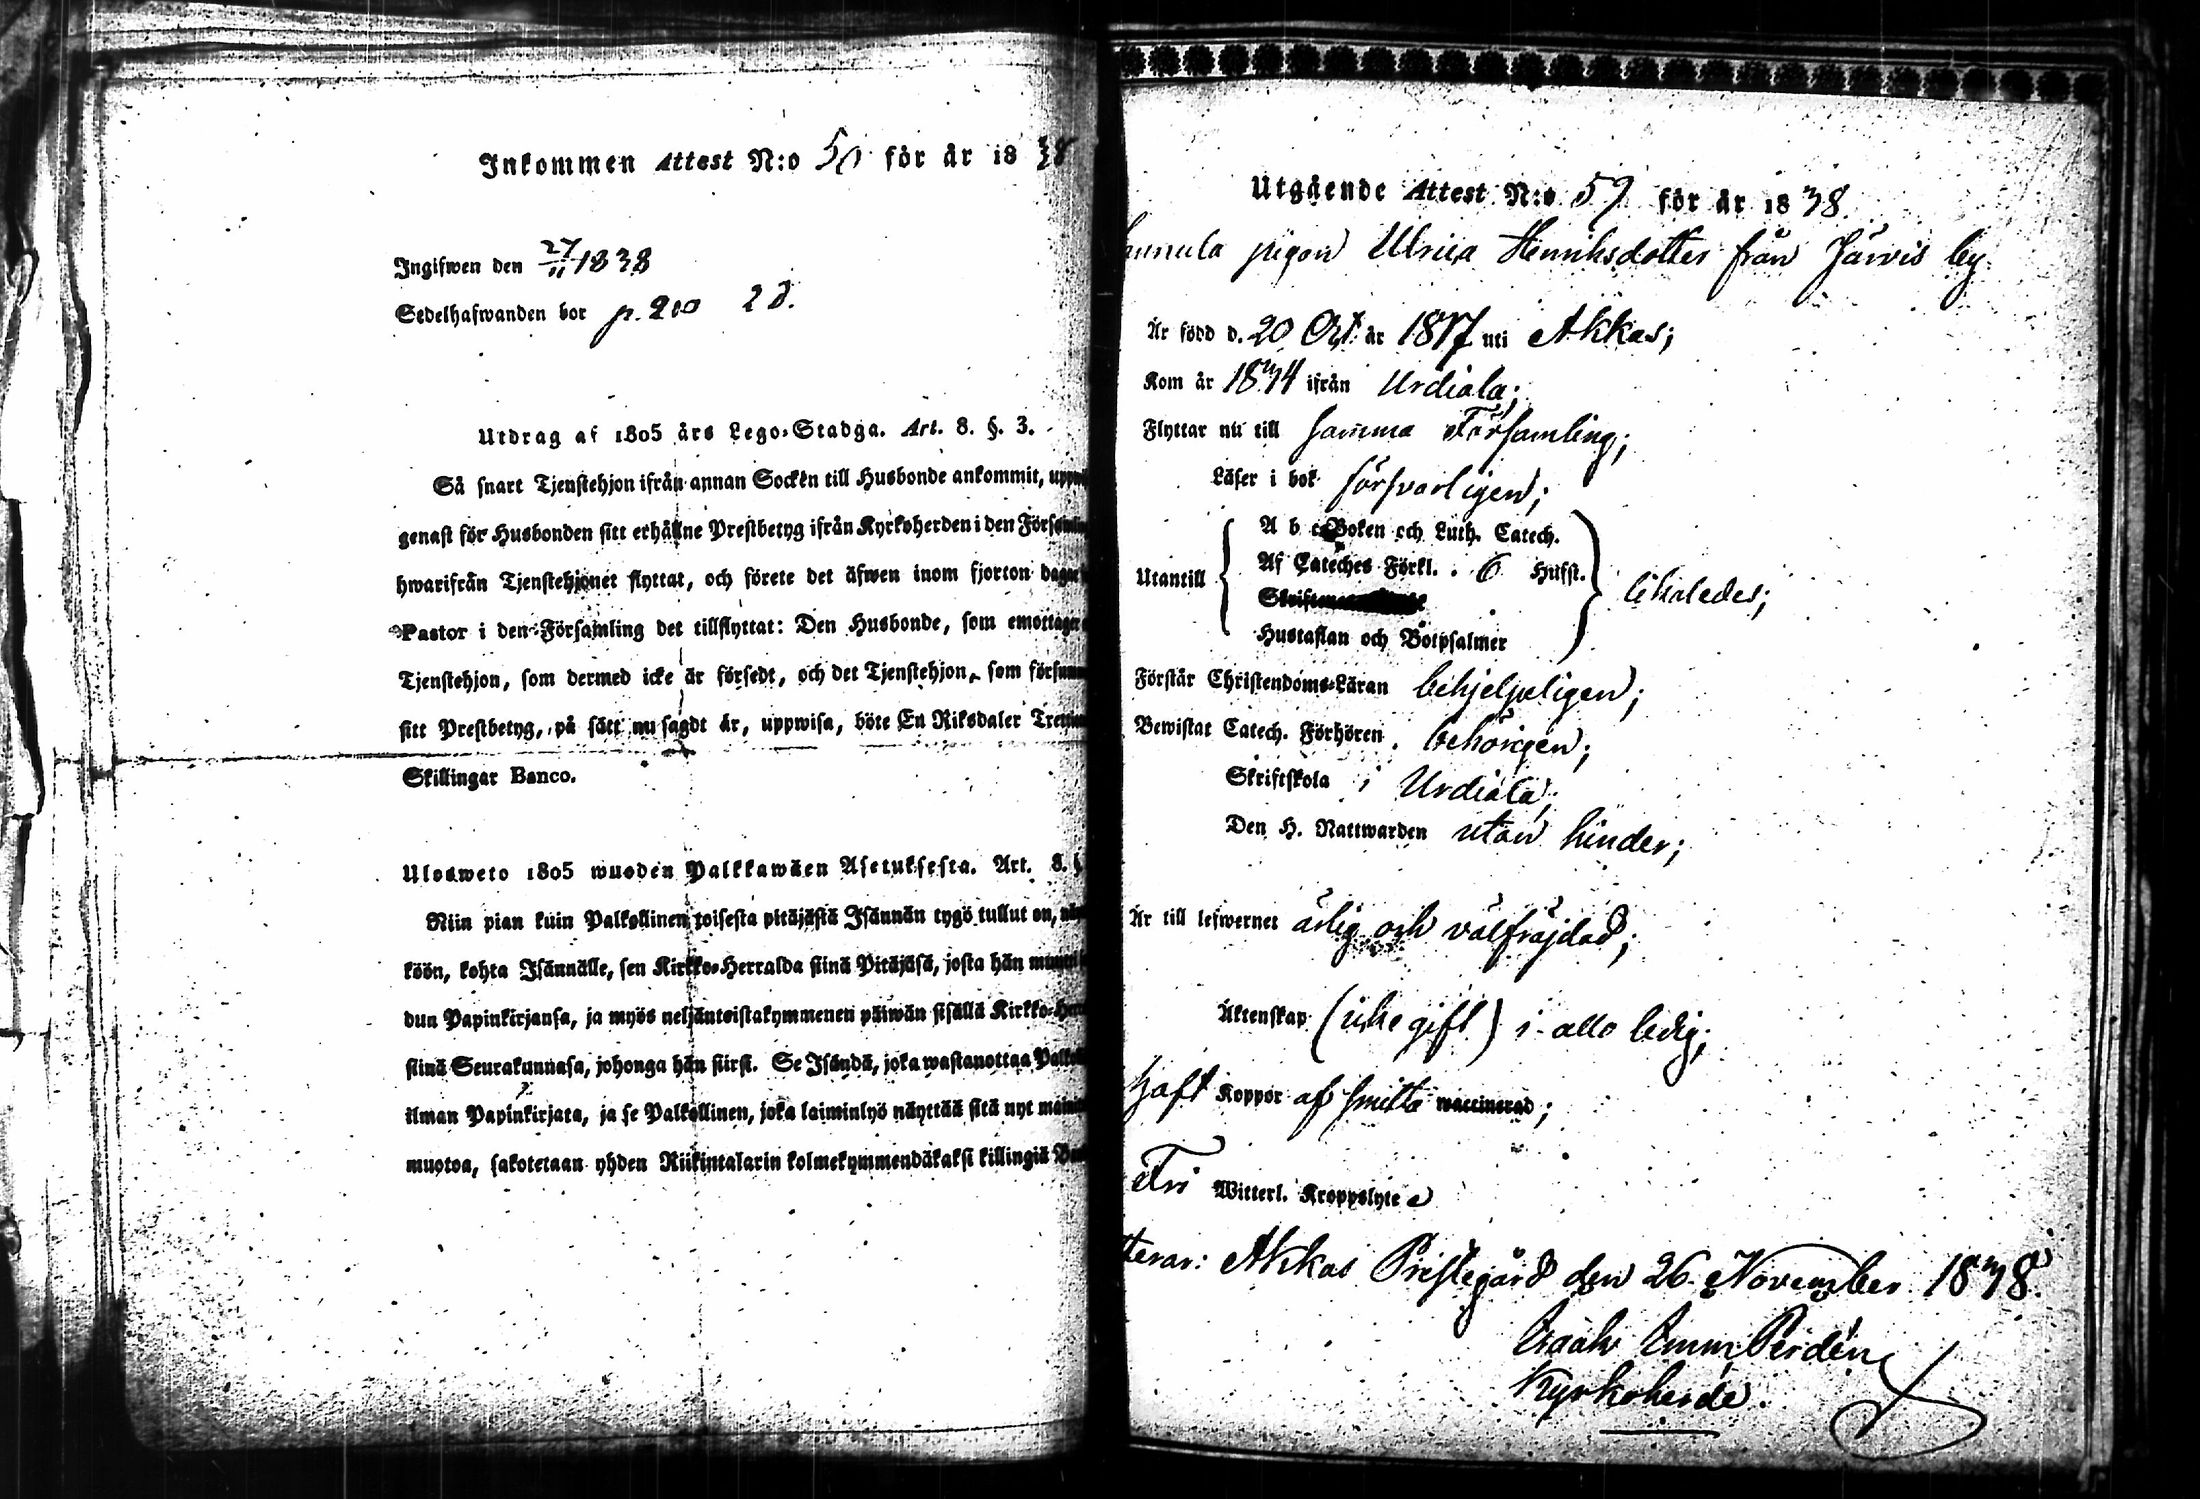 Inkommen Attest N:o 50 för år 1838
Ingifwen den 27/11 1838
Sedelhafwanden bor p. 200 28.
Utdrag af 1805 års Lego-Stadga. Art. 8. §. 3.
Så snart Tjenstehjon ifrån annan Socken till Husbonde ankommit,
genast för Husbonden sitt erhållne Prestbetyg ifrån Kyrkoherden i den
hwarifrån Tjenstehjonet flyttat, och förete det äfwen inom fjorton
Pastor i den Församling det tillflyttat: Den Husbonde, som emottager
Tjenstehjon, som dermed icke är försedt, och det Tjenstehjon, som
sitt Prestbetyg, på sätt nu sagdt är, uppwisa, böte En Riksdaler
Skillingar Banco.
Ulosweto 1805 wuoden Palkkawäen Asetuksesta. Art. 8.
Niin pian kuin Palkollinen toisesta pitäjästä Isännän tygö tullut on,
köön, kohta Isännälle, sen Kirkko-Herralda siinä Pitäjäsä, josta hän
dun Papinkirjansa, ja myös neljäntoistakymmenen päiwän sisällä
siinä Seurakunnasa, johonga hän siirsi. Se Isändä, joka wastanottaa
ilman Papinkirjata, ja se Palkollinen, joka laiminlyö näyttää sitä nyt
muotoa, sakotetaan yhden Riikintalarin kolmekymmendäkaksi killingiä
Utgående Attest N:o 59 för år 1838.
pigan Ulrica Henriksdotter från Järvis by
Är född d. 20 Oct. år 1817 uti Akkas;
Kom år 1834 ifrån Urdiala;
Flyttar nu till samma Församling;
Läser i bok försvarligen;
A b c-Boken och Luth. Catech.
Utantill Af Cateches Förkl. 6 Hufst. likaledes;
Hustaflan och Botpsalmer
Förstår Christendoms-Läran behjelpeligen;
Bewistat Catech. Förhören behörigen;
Skriftskola i Urdiala;
Den H. Nattwarden utan hinder;
Är till lefwernet ärlig och välfräjdad;
Äktenskap (icke gift) i allo ledig;
haft Koppor af smitta waccinerad;
Fri Witterl. Kroppslyte
Akkas Prestegård den 26 November 1838.
Kyrkoherde.